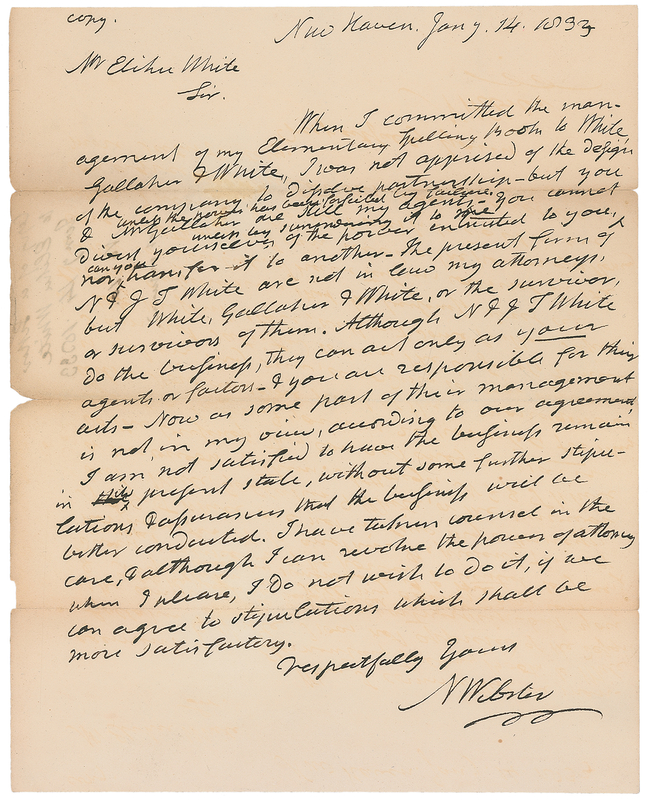 copy.
New Haven. Jany. 14. 1833
Mr Elihu White
Sir.
When I committed the man-
agement of my Elementary Spelling Book to White
Gallaher & White, I was not apprised of the design
of the company to dissolve partnership - but you
unless the power has been forfeited by failure,
& Mr Gallaher are still my agents - you cannot
unless by surrendering it to me
Divest yourselves of the power intrusted to you,
can you
nor transfer it to another - The present firm of
N & J White are not in law my attorneys,
but White, Gallaher & White, or the survivor,
or survivors of them. Although N & J White
do the business, they can act only as your
agents or factors - & you are responsible for their
acts - Now as some part of their management
is not, in my view, according to our agreement,
I am not satisfied to have the business remain
in its present state, without some further stipu-
lations & assurances that the business will be
better conducted. I have taken counsel in the
case, & although I can revoke the power of attorney
when I please, I do not wish to do it, if we
can agree to stipulations which shall be
more satisfactory.
respectfully Yours
N Webster